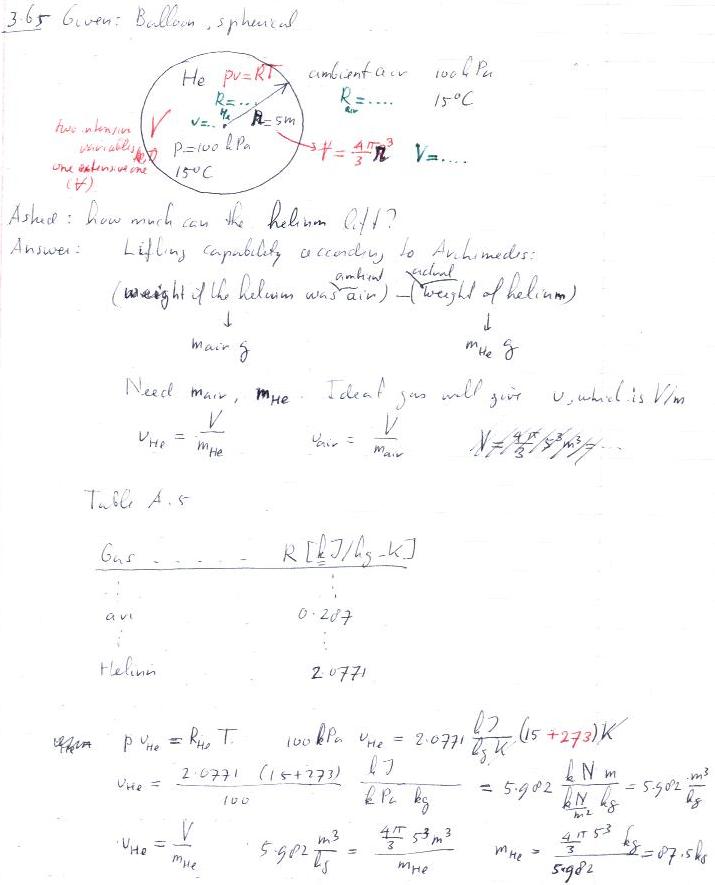 3.65 Given: Balloon, spherical
He pv=RT ambient air 100 kPa
R=.... R=.... 15°C
He air
v=.. R=5m
two intensive variables
one extensive one
(V)
V
p=100 kPa
15°C
V= 4π/3 r³ V=....
Asked: how much can the helium lift?
Answer: Lifting capability according to Archimedes:
ambient actual
(weight if the helium was air) - (weight of helium)
↓ ↓
m air g m He g
Need m air, m He. Ideal gas will give v, which is V/m
v He = V/m He v air = V/m air V = 4π/3 5³ m³ = ...
Table A.5
Gas ..... R [kJ/kg-K]
⋮ ⋮
air 0.287
⋮ ⋮
Helium 2.0771
p v He = R He T. 100 kPa v He = 2.0771 kJ/kg K (15 +273) K
v He = 2.0771 (15+273)/100 kJ/kPa kg = 5.982 kN m/(kN/m² kg) = 5.982 m³/kg
v He = V/m He 5.982 m³/kg = (4π/3 5³ m³)/m He m He = (4π/3 5³)/5.982 kg = 87.5 kg